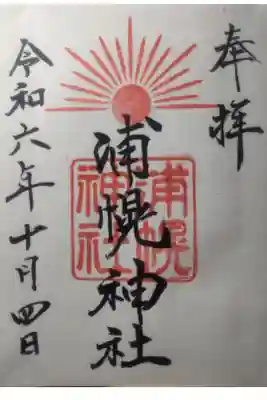 奉拝
浦幌神社
浦幌神社
令和六年十月四日